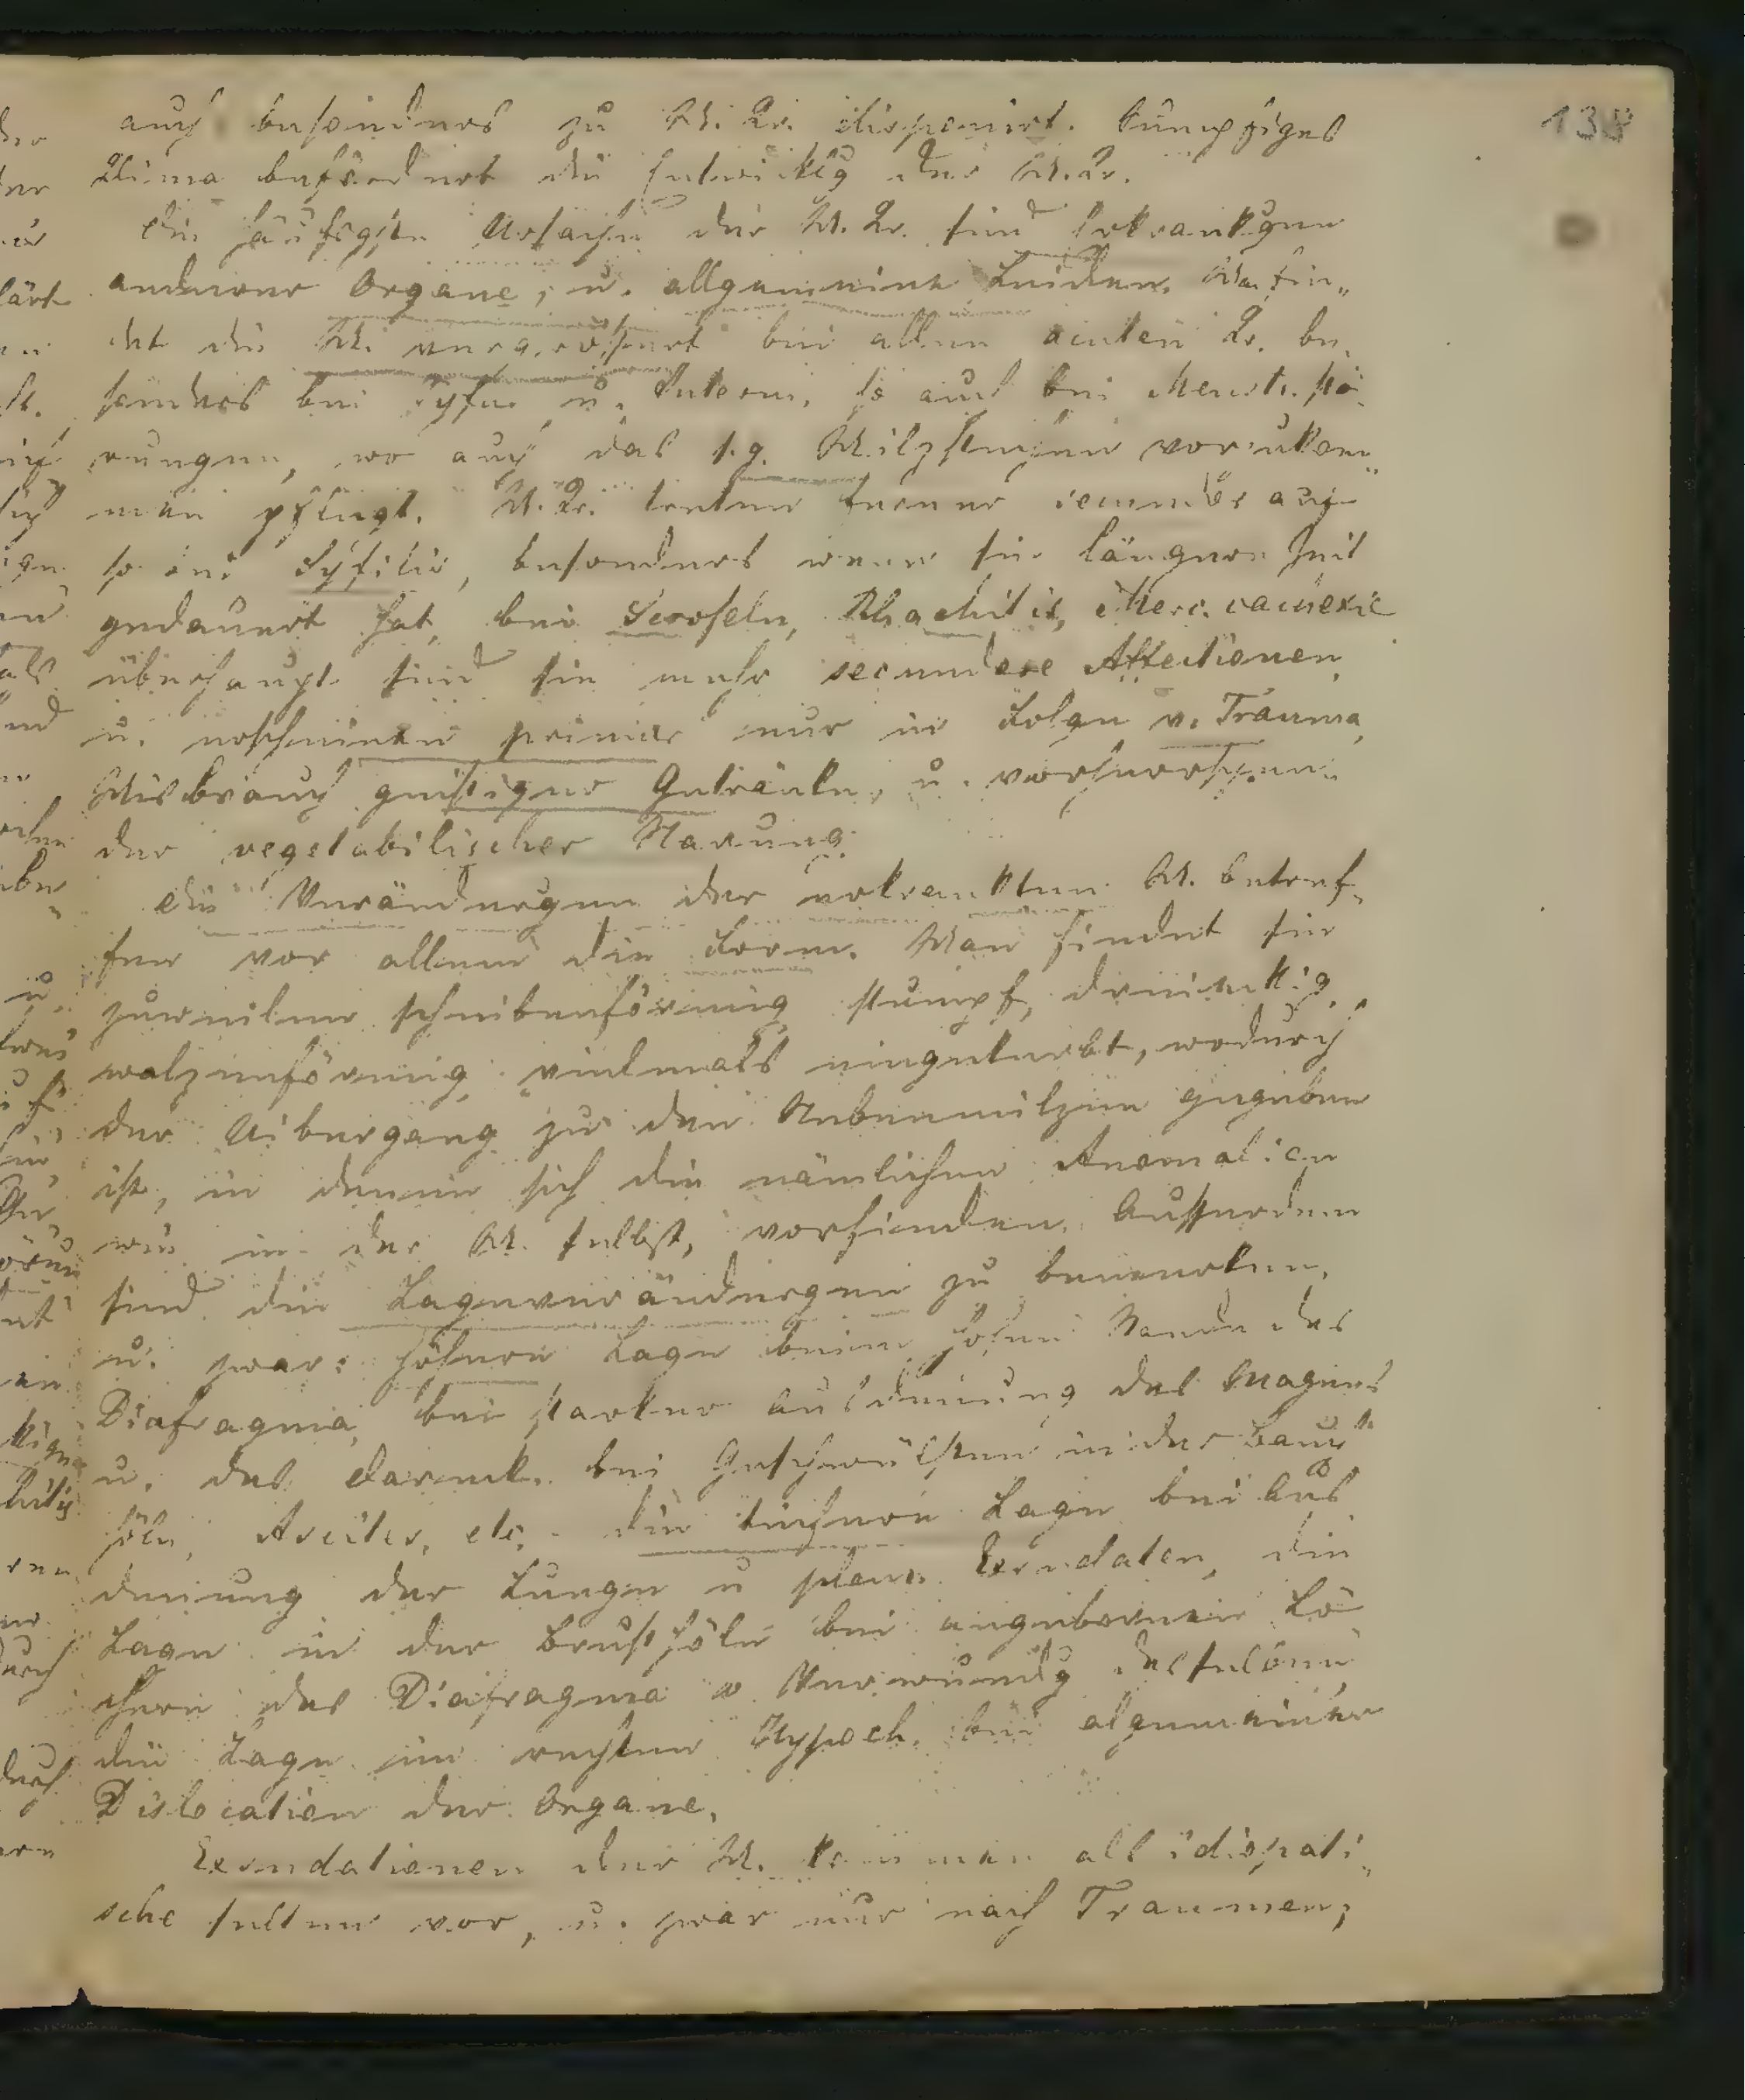 138
auch besonders zu M. Kr. disponirt. Sumpfiges
Klima befördert die Entwicklg der M. Kr.
Die häufigsten Ursachen der M. Kr. sind Erkrankgen
anderer Organe, u. allgemeine Leiden. Ma fin„
det die M. vergrössert bei allen acuten Kr. be„
sonders bei Tyfus u. Interm. so auch bei Menst. stö„
rungen, wo auch das s.g. Milzstechen vorzukom„
men pflegt. M. Kr. treten ferner secundär auf
so bei Syfilis, besonders wenn sie längere Zeit
gedauert hat, bei Scrofeln, Rhachitis, Merc. cachexie
überhaupt sind sie mehr secundere Affectionen,
u. erscheinen primär nur in Folge v. Trauma,
Misbrauch geistiger Getränke, u. vorherrschen
der vegetabilischer Narung.
Die Veränderungen der erkrankten M. betref„
fen vor allem die Form. Man findet sie
zuweilen scheibenförmig, stumpf, dreieckig,
walzenförmig, vielmals eingekerbt, wodurch
der Uibergang zu den Nebenmilzen gegeben
ist, in denen sich die nämlichen Anomalien
wie in der M. selbst, vorfienden. Ausserdem
sind die Lageveränderungen zu bemerken,
u. zwar: höhere Lage beim hohen Stande des
Diafragma, bei starker Ausdenung des Magens
u. des Darmk. bei Geschwülsten in der Bauch„
höle, Ascites, etc. die tiefere Lage bei Aus
denung der Lunge u pleur. Exsudaten, die
Lage in der Brusthöle bei angebornen Lö„
chern des Diafragma o Verwundg desselben
die Lage im rechten Hypoch. bei algemeiner
Dislocation der Organe.
Exsudationen der M. kommen als idiopati„
sche selten vor, u. zwar nur nach Traumen;